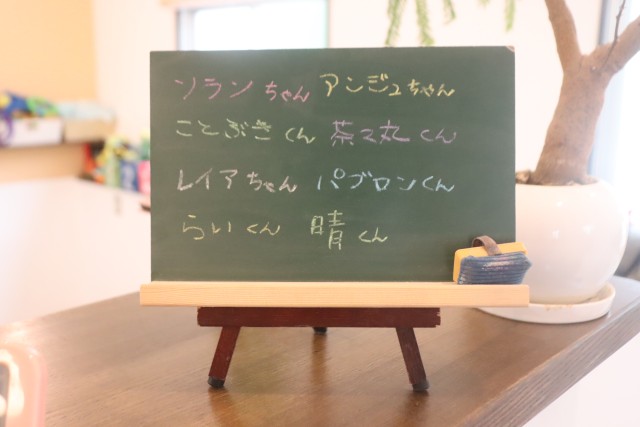 ソランちゃん アンジュちゃん
ことぶきくん 茶々丸くん
レイアちゃん パブロンくん
らいくん 晴くん